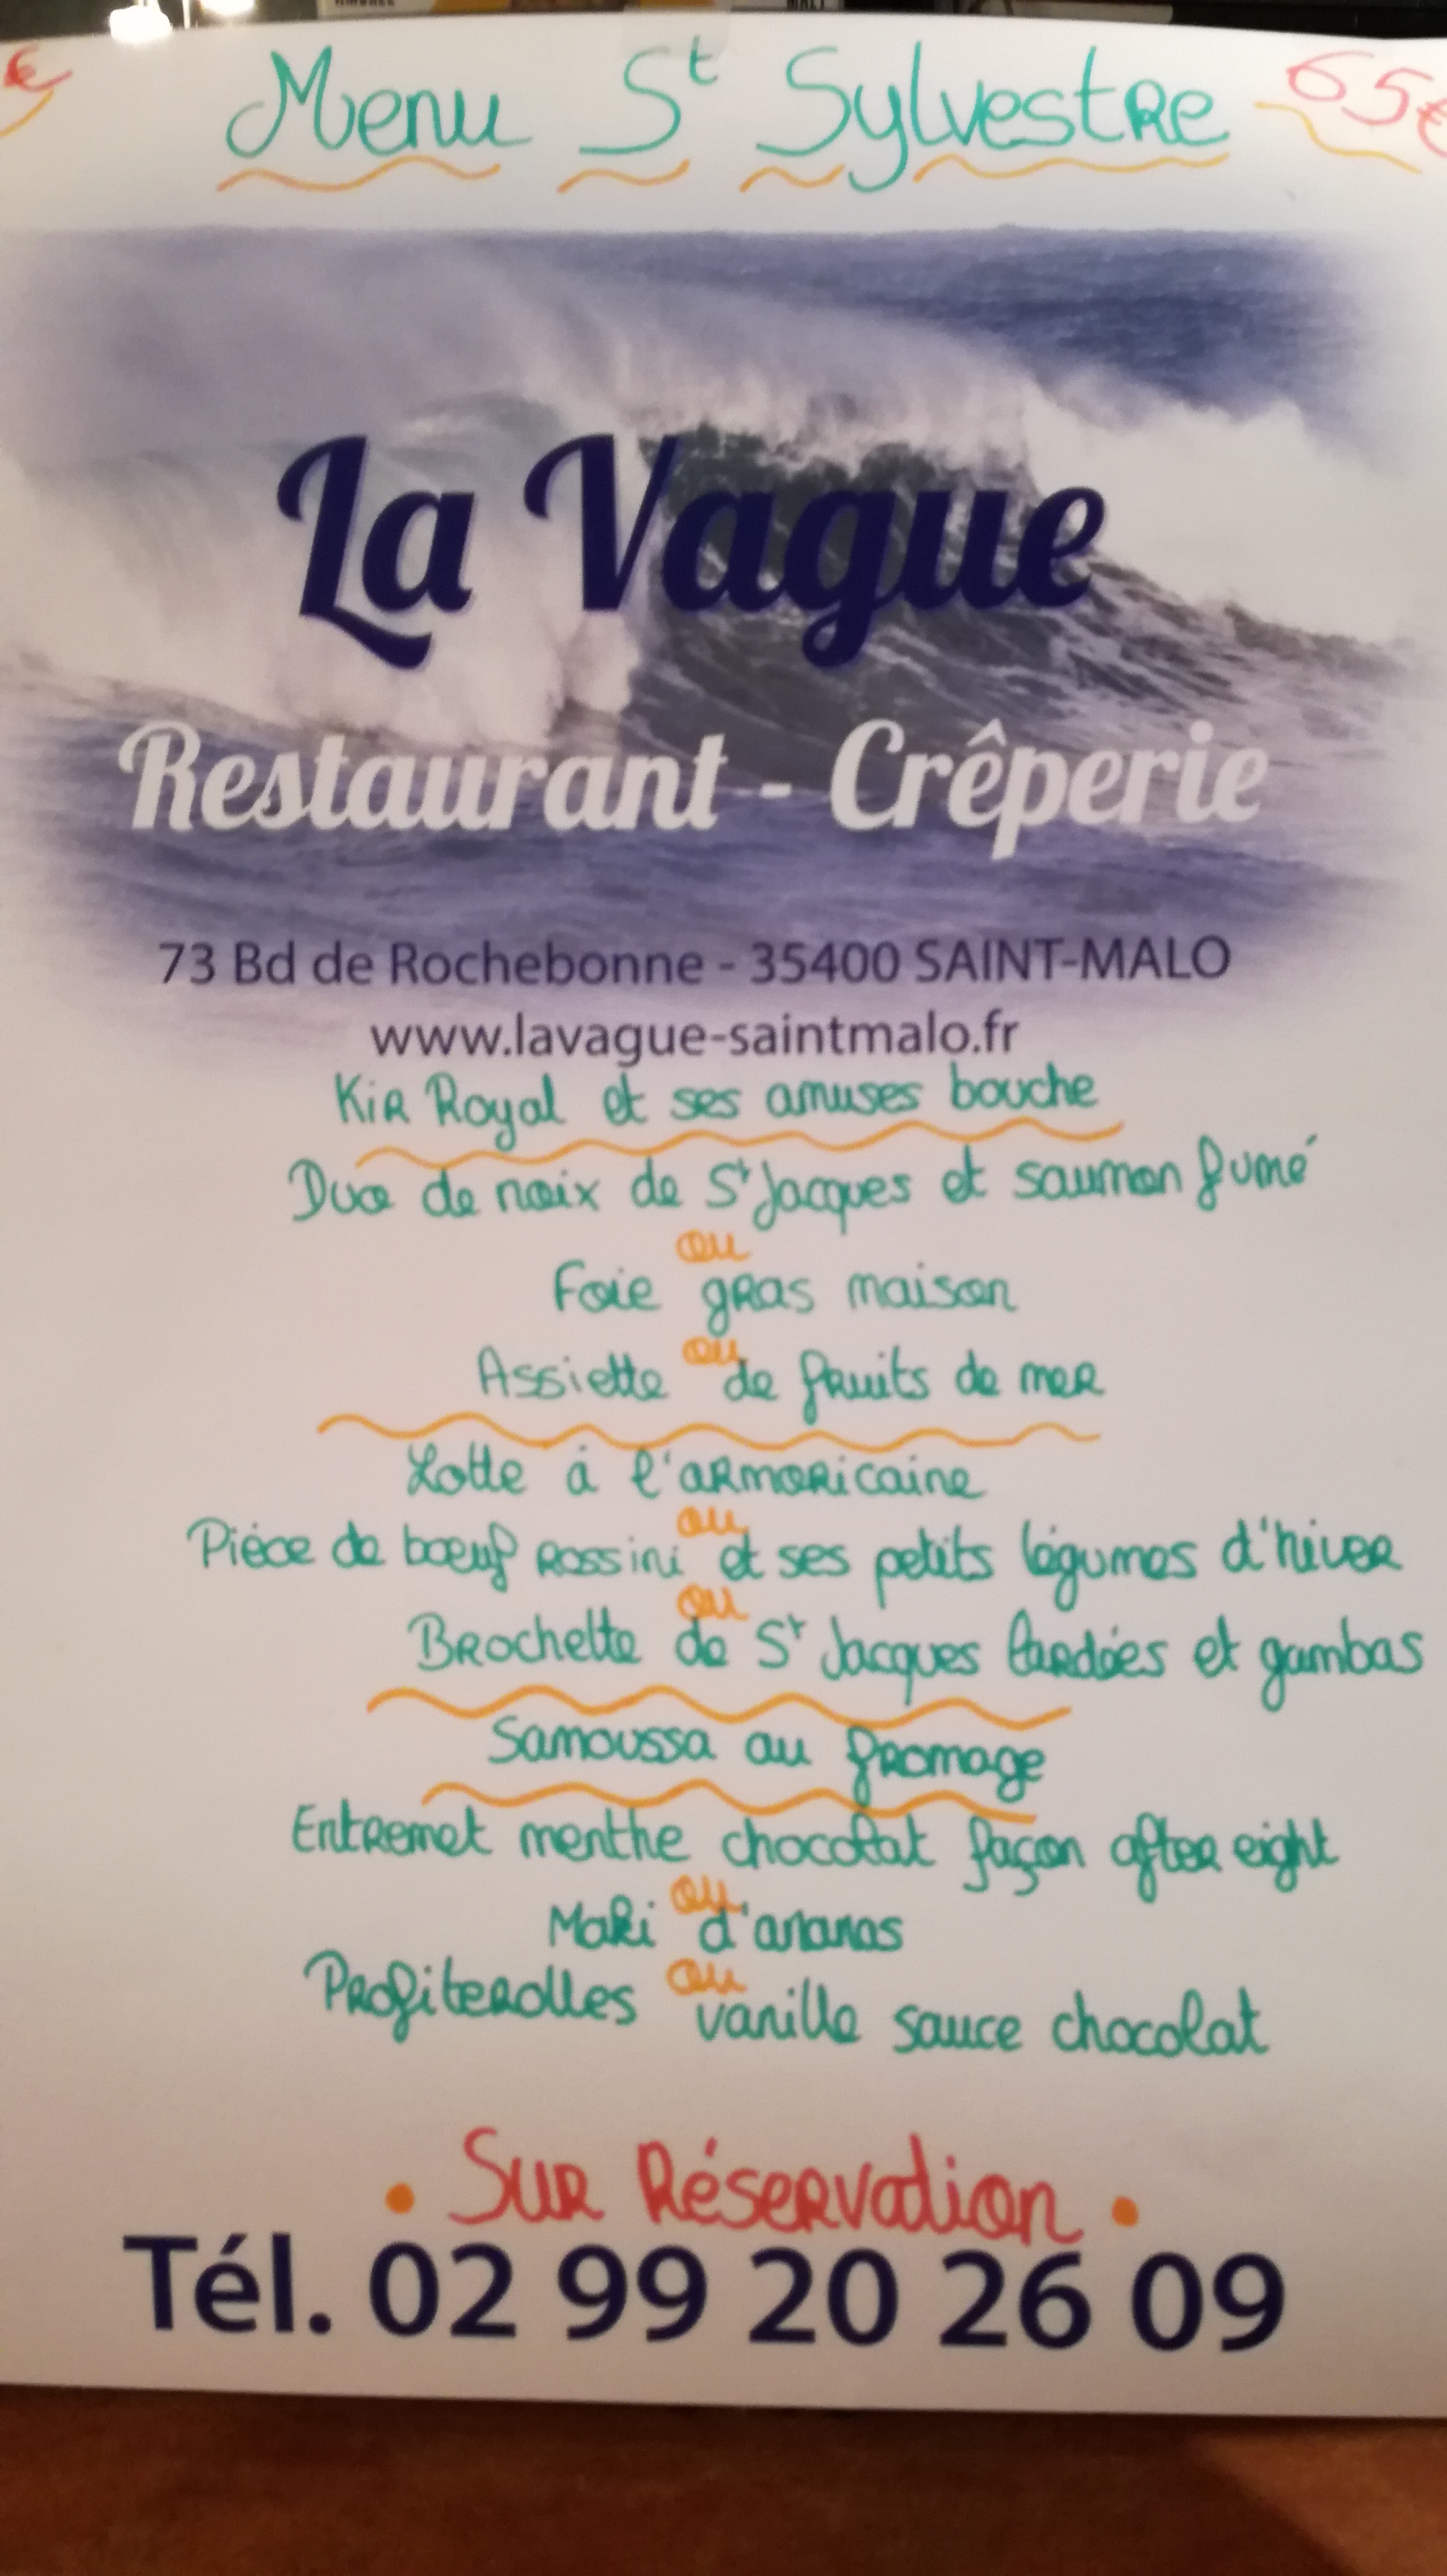 € Menu St Sylvestre 65€
La Vague
Restaurant - Crêperie
73 Bd de Rochebonne - 35400 SAINT-MALO
www.lavague-saintmalo.fr
Kir Royal et ses amuses bouche
Duo de noix de St Jacques et saumon fumé
ou
Foie gras maison
ou
Assiette de fruits de mer
Lotte à l'armoricaine
ou
Pièce de bœuf Rossini et ses petits légumes d'hiver
ou
Brochette de St Jacques lardées et gambas
Samoussa au fromage
Entremet menthe chocolat façon after eight
ou
Maki d'ananas
ou
Profiterolles vanille sauce chocolat
• Sur Réservation •
Tél. 02 99 20 26 09